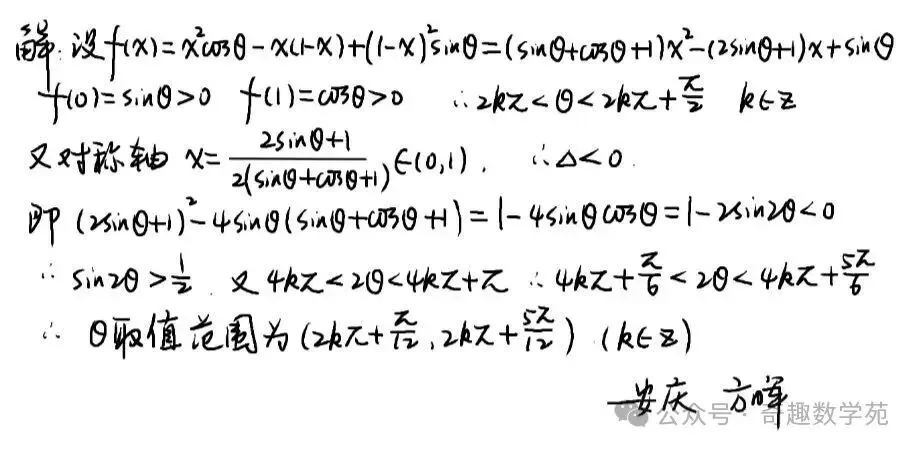 解:设f(x)=x²cosθ-x(1-x)+(1-x)²sinθ=(sinθ+cosθ+1)x²-(2sinθ+1)x+sinθ
f(0)=sinθ>0 f(1)=cosθ>0 ∴2kπ<θ<2kπ+π/2 k∈z
又对称轴 x=(2sinθ+1)/(2(sinθ+cosθ+1))∈(0,1). ∴Δ<0.
即 (2sinθ+1)²-4sinθ(sinθ+cosθ+1)=1-4sinθcosθ=1-2sin2θ<0
∴ sin2θ>1/2. 又 4kπ<2θ<4kπ+π ∴4kπ+π/6<2θ<4kπ+5π/6
∴ θ取值范围为(2kπ+π/12,2kπ+5π/12) (k∈z)
—安庆 方晖
公众号·奇趣数学苑